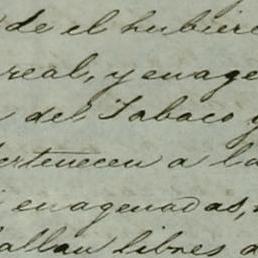 de el hubiere
real, y enage
del Tabaco y
ertenecen a la
enagenadas,
allan libres a